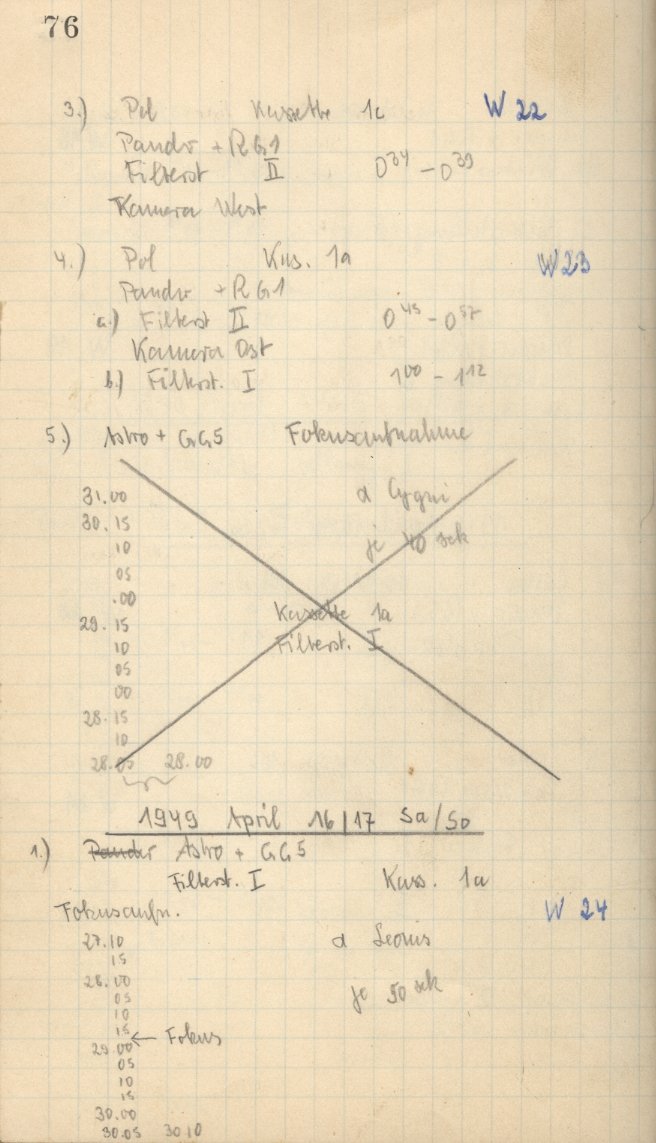 76
3.) Pol Kassette 1c W 22
Pandr + RG1
Filterst II 0³⁴ – 0³⁹
Kamera West
4.) Pol Kas. 1a W23
Pandr + RG1
a.) Filterst II 0⁴⁵ – 0⁵⁷
Kamera Ost
b.) Filterst. I 1⁰⁰ – 1¹²
5.) Astro + GG5 Fokusaufnahme
31.00 α Cygni
30.15
10 je 40 sek
05
.00 Kassette 1a
29.15
10 Filterst. I
05
00
28.15
10
28.05 28.00
1949 April 16|17 Sa/So
1.) Pander Astro + GG5
Filterst. I Kass. 1a
Fokusaufn. W 24
27.10 α Leonis
15
28.00 je 50 sek
05
10
15 ← Fokus
29.00
05
10
15
30.00
30.05 30 10